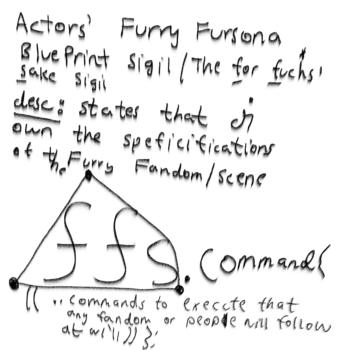 Actors' Furry Fursona
BluePrint Sigil/The for fuchs'
sake sigil
desc: states that i
own the speficifications
of the Furry Fandom/scene
ffs. Command{
(( ,, commands to execcte that
any fandom or people will follow
at will )) };